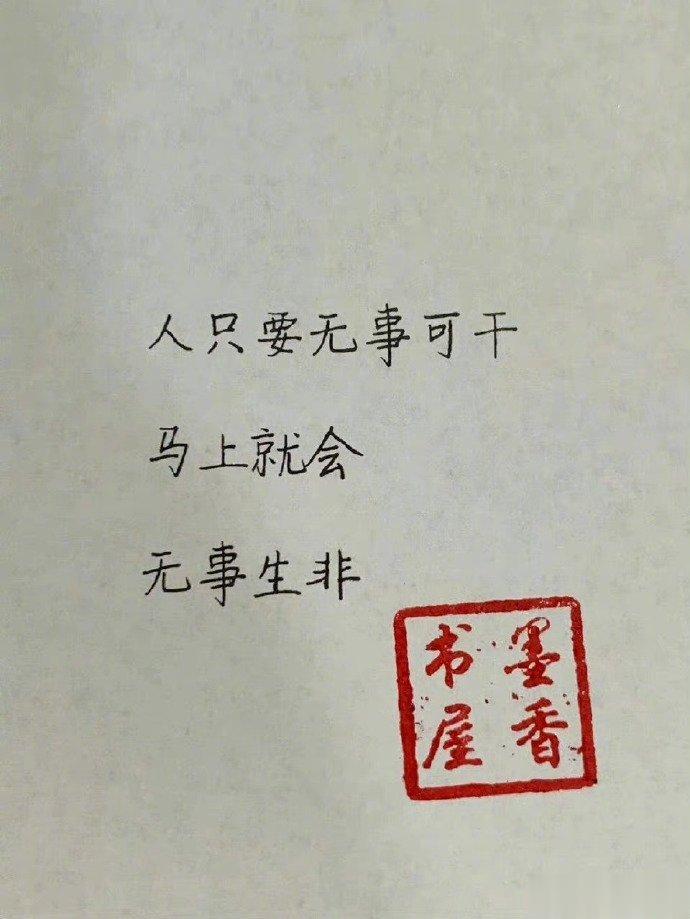 人只要无事可干
马上就会
无事生非
墨香
书屋